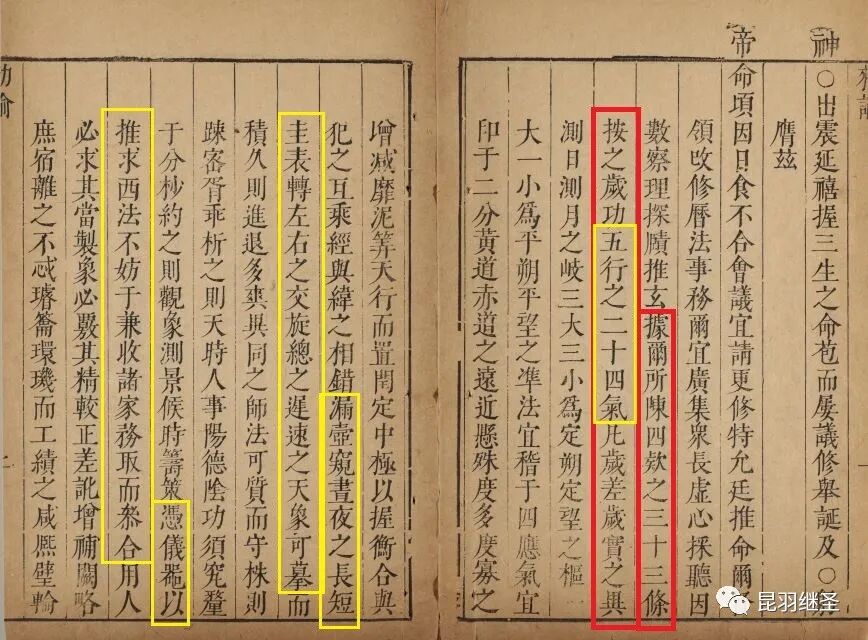 神○出震延禧握三生之命苞而屢議修舉誕及○
膺茲
帝命頃因日食不合會議宜請更修特允廷推命爾
領攺修曆法事務爾宜廣集衆長虛心採聽因
數察理探賾推玄據爾所陳四欵之三十三條
按之歲功五行之二十四氣凡歲差歲實之與
測日測月之岐三大三小爲定朔定望之樞一
大一小爲平朔平望之準法宜稽于四應氣宜
印于二分黃道赤道之遠近懸殊度多度寡之
增減靡泥筭天行而置閏定中極以握衡合與
犯之互乘經與緯之相錯漏壺窺晝夜之長短
圭表轉左右之交旋總之遲速之天象可摹而
積久則進退多爽異同之師法可質而守株則
踈審胥乖析之則天時人事陽德陰功須究釐
于分杪約之則觀象測景候時籌策憑儀噐以
推求西法不妨于兼收諸家務取而叅合用人
必求其當製象必覈其精較正差訛增補闕略
庶宿離之不忒璿籥環璣而工績之咸熈璧輪
昆羽继圣